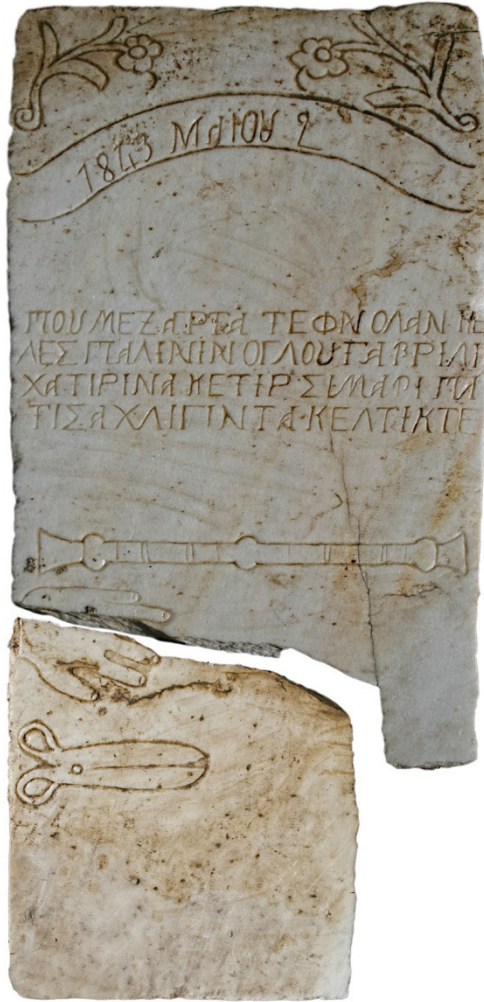 ΜΑΙΟΥ 2
ΠΟΥ ΜΕΖΑΡΤΑ ΤΕΦΝ ΟΛΑΝ ΚΕ
ΛΕΣ ΠΑΛΙΝΙΝ ΟΓΛΟΥ ΓΑΒΡΙΛΙ
ΧΑΤΙΡΙΝΑ ΚΕΤΙΡΣΙΜΑΦΙ ΠΑ
ΤΙΣΑΧΛΙΓΙΝΤΑ·ΚΕΛΤΙΚΤΕ